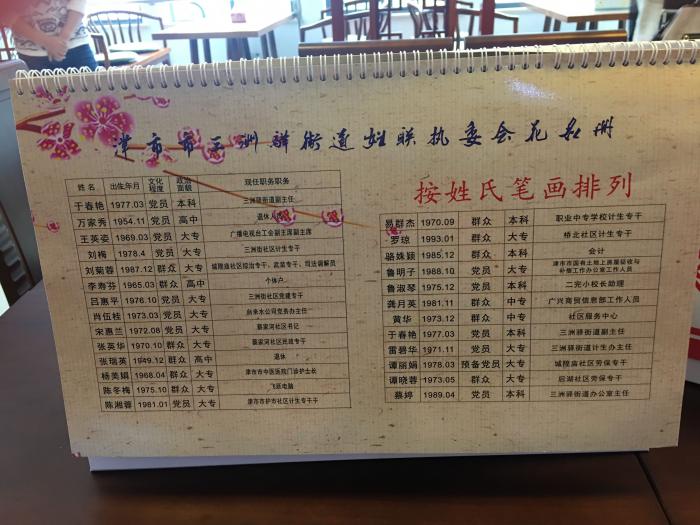 津市市三洲驿街道妇联执委会花名册
姓名 出生年月 文化程度 政治面貌 现任职务职务
于春艳 1977.03 党员 本科 三洲驿街道副主任
万家秀 1954.11 党员 高中 退休
王英姿 1969.03 党员 大专 广播电视台工会副主席副主席
刘梅 1978.4 党员 大专 三洲街社区计生专干
刘菊蓉 1987.12 群众 大专 城隍庙社区综治专干、武装专干、司法调解员
李寿芬 1965.03 群众 高中 个体户
吕惠平 1976.10 党员 大专 三洲街社区党建专干
肖伍桂 1973.03 党员 大专 自来水公司党务办主任
宋惠兰 1972.08 党员 大专 蔡家河社区书记
张英华 1970.10 群众 大专 蔡家河社区民政专干
张瑞英 1949.12 群众 高中 退休
杨美娟 1968.04 群众 大专 津市市中医医院门诊护士长
陈冬梅 1975.10 群众 大专 飞跃电脑
陈湘蓉 1981.01 党员 大专 津市市护市社区计生专干干
按姓氏笔画排列
易群杰 1970.09 群众 本科 职业中专学校计生专干
罗琼 1993.01 群众 大专 桥北社区计生专干
骆姝颖 1985.12 群众 本科 会计
鲁明子 1988.10 党员 大专 津市市国有土地上房屋征收与补偿工作办公室工作人员
鲁淑琴 1975.12 党员 本科 二完小校长助理
龚月英 1981.11 群众 中专 广兴商贸信息部工作人员
黄华 1973.12 群众 中专 社区服务中心
于春艳 1977.03 党员 本科 三洲驿街道副主任
雷碧华 1971.11 党员 大专 三洲驿街道计生办主任
谭丽娟 1978.03 预备党员 大专 城隍庙社区劳保专干
谭晓蓉 1973.05 群众 大专 后湖社区劳保专干
蔡婷 1989.04 党员 本科 三洲驿街道办公室主任